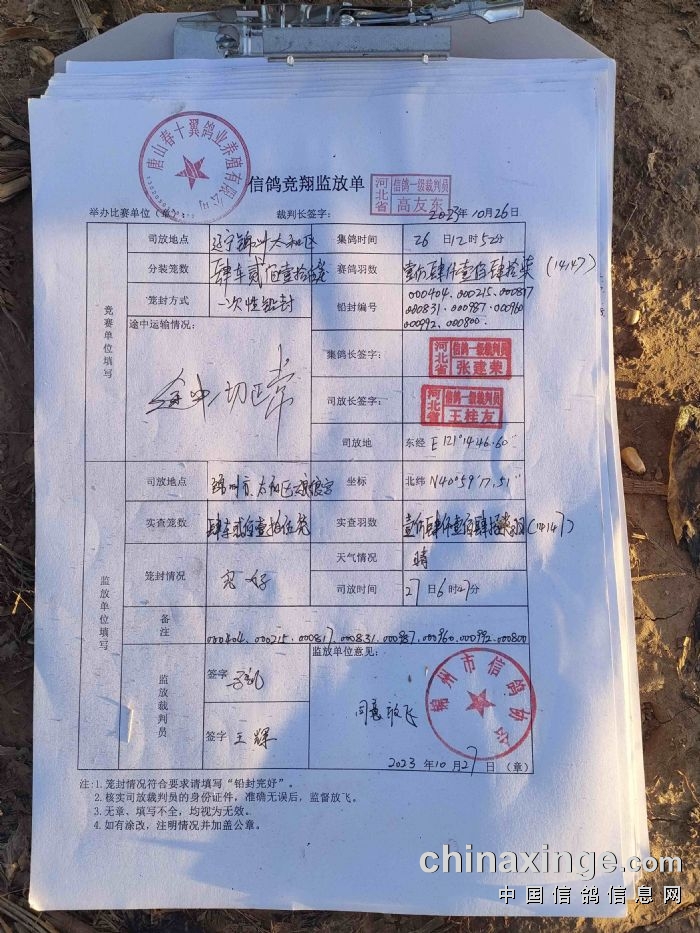 唐山春十翼鸽业养殖有限公司
信鸽竞翔监放单
举办比赛单位（章）： 裁判长签字： 河北省 信鸽一级裁判员 高友东 2023年10月26日
竞赛单位填写
司放地点 辽宁锦州太和区 集鸽时间 26日12时52分
分装笼数 肆车贰佰壹拾 赛鸽羽数 壹万肆仟壹佰肆拾柒（14147）
笼封方式 一次性铅封 铅封编号 000404.000215.000817
000831.000987.000960
000992.000800.
途中运输情况： 途中一切正常
集鸽长签字： 河北省 信鸽一级裁判员 张建荣
司放长签字： 河北省 信鸽一级裁判员 王桂友
司放地 东经 E 121°14'46.60"
监放单位填写
司放地点 锦州市太和区 坐标 北纬 N40°59'17.51"
实查笼数 肆车贰佰壹拾 实查羽数 壹万肆仟壹佰肆拾柒羽(14147)
笼封情况 完好 天气情况 晴
司放时间 27日6时27分
备注 000404.000215.000817.000831.000987.000960.000992.000800
监放裁判员 签字 监放单位意见：
签字 王辉 同意放飞
锦州市信鸽协会
2023年10月27日（章）
注：1. 笼封情况符合要求请填写“铅封完好”。
2. 核实司放裁判员的身份证件，准确无误后，监督放飞。
3. 无章、填写不全，均视为无效。
4. 如有涂改，注明情况并加盖公章。
chinaxinge.com
中国信鸽信息网